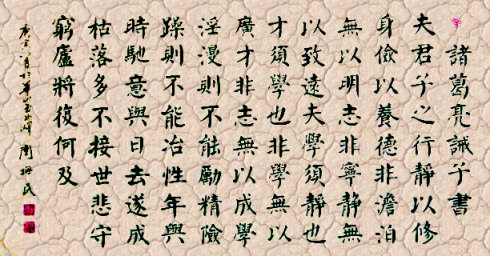 諸葛亮誡子書
夫君子之行靜以修
身儉以養德非澹泊
無以明志非寧靜無
以致遠夫學須靜也
才須學也非學無以
廣才非志無以成學
淫漫則不能勵精險
躁則不能治性年與
時馳意與日去遂成
枯落多不接世悲守
窮廬將復何及